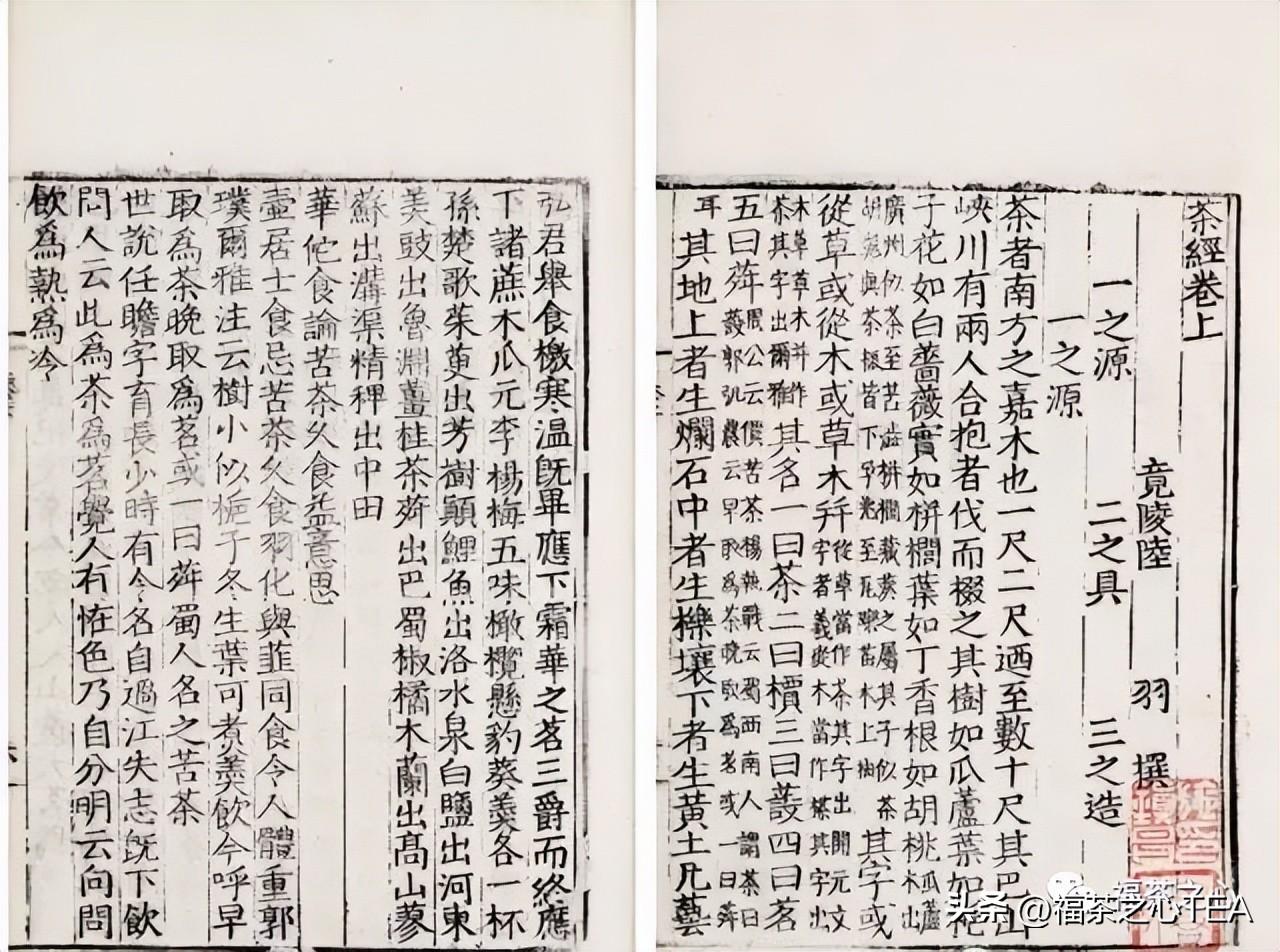 茶經卷上
竟陵陸 羽 撰
一之源 二之具 三之造
一之源
茶者南方之嘉木也一尺二尺迺至數十尺其巴山
峽川有兩人合抱者伐而掇之其樹如瓜蘆葉如梔
子花如白薔薇實如栟櫚葉如丁香根如胡桃瓜蘆木出
廣州似茶至苦澁栟櫚蒲葵之屬其子似茶胡桃與茶根皆下孕兆至瓦礫苗木上抽其字或
從草或從木或草木幷從草當作茶其字出開元文字者義從木當作搽其字出
本草草木并作荼其字出爾雅其名一曰茶二曰檟三曰蔎四曰茗
五曰荈周公云檟苦荼楊執戟云蜀西南人謂茶曰蔎郭弘農云早取爲茶晚取爲茗或一曰荈
耳其地上者生爛石中者生櫟壤下者生黃土凡藝
弘君舉食檄寒溫旣畢應下霜華之茗三爵而終應
下諸蔗木瓜元李楊梅五味橄欖懸豹葵羹各一杯
孫楚歌茱萸出芳樹顛鯉魚出洛水泉白鹽出河東
美豉出魯淵薑桂茶荈出巴蜀椒橘木蘭出高山蓼
蘇出溝渠精稗出中田
華佗食論苦茶久食益意思
壺居士食忌苦茶久食羽化與韮同食令人體重郭
璞爾雅注云樹小似梔子冬生葉可煮羹飲今呼早
取爲茶晚取爲茗或一曰荈蜀人名之苦茶
世說任瞻字育長少時有令名自過江失志旣下飲
問人云此爲茶爲茗覺人有恠色乃自分明云向問
飲爲熱爲冷
福茶之
头条 @福茶芝心TEA